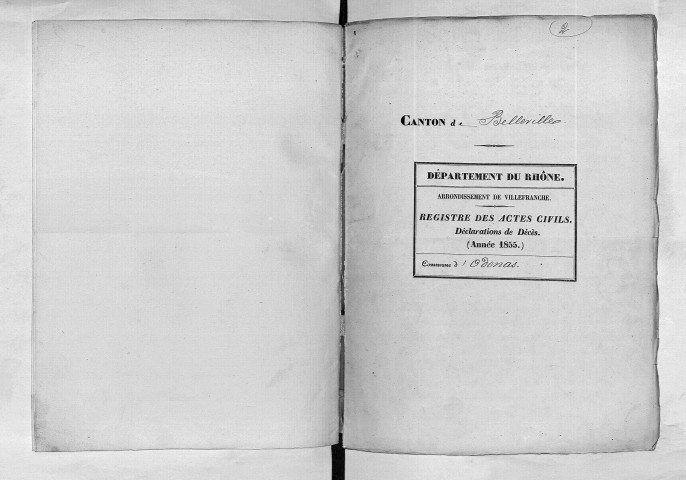 2
CANTON de Belleville
DÉPARTEMENT DU RHÔNE.
ARRONDISSEMENT DE VILLEFRANCHE.
REGISTRE DES ACTES CIVILS.
Déclarations de Décès.
(Année 1855.)
Commune d'Odenas.